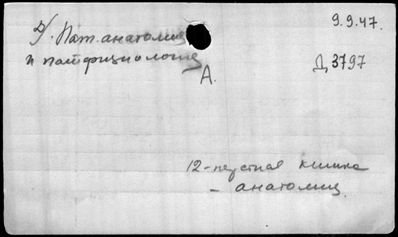 2/. Пат. анатомия 9.9.47.
и патфизиология Д 3797
А.
12-перстная кишка
- анатомия.